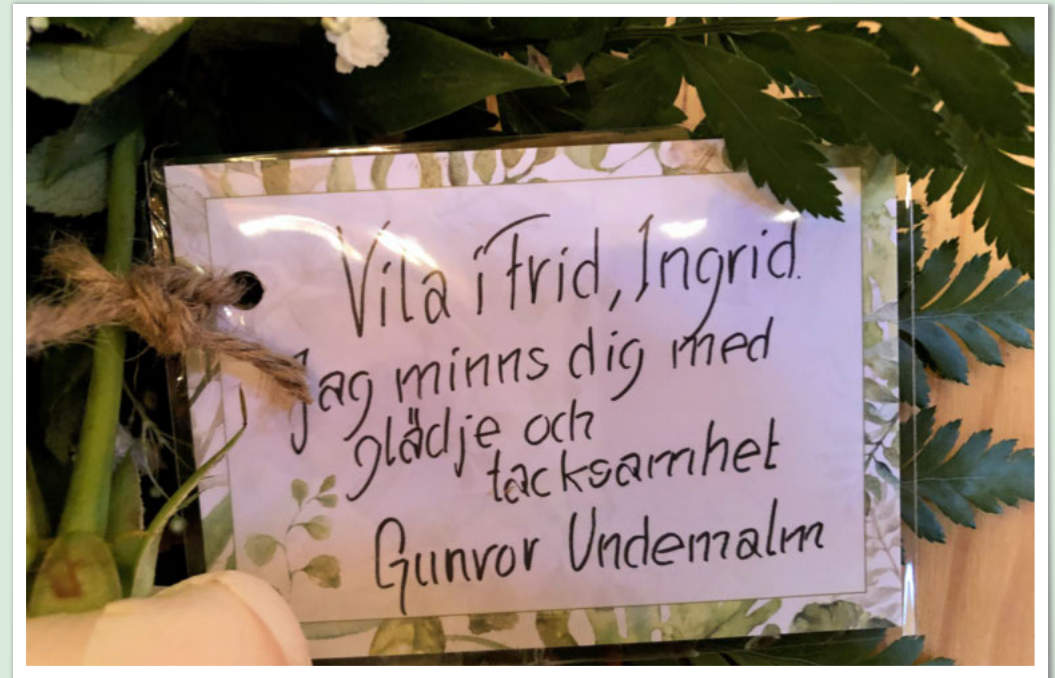 Vila i Frid, Ingrid.
Jag minns dig med
glädje och
tacksamhet
Gunvor Undemalm